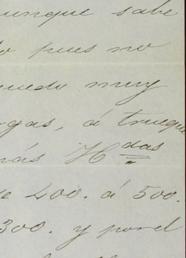 unque sabe
o pues no
uedo muy
rgas, á trueque
rás H.das
e 400. á 500.
300. y por el